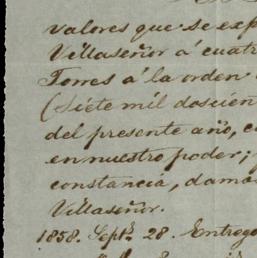 valores que se exp
Villaseñor á cuatr
Torres á la orden
(Siete mil doscien
del presente año, c
en nuestro poder;
constancia, damo
Villaseñor.
1858. Septe. 28. Entrego